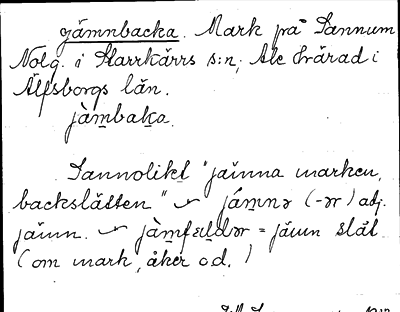 jämnbacka. Mark på Sannum
Nolg. i Starrkärrs s:n, Ale härad i
Älfsborgs län.
jàm̱baḵa.
Sannolikt "jämna marken,
backslätten" ~ jám̱nə (-ər) adj.
jämn. ~ jàm̱fɛḻdər = jämn slät
(om mark, åker o d.)